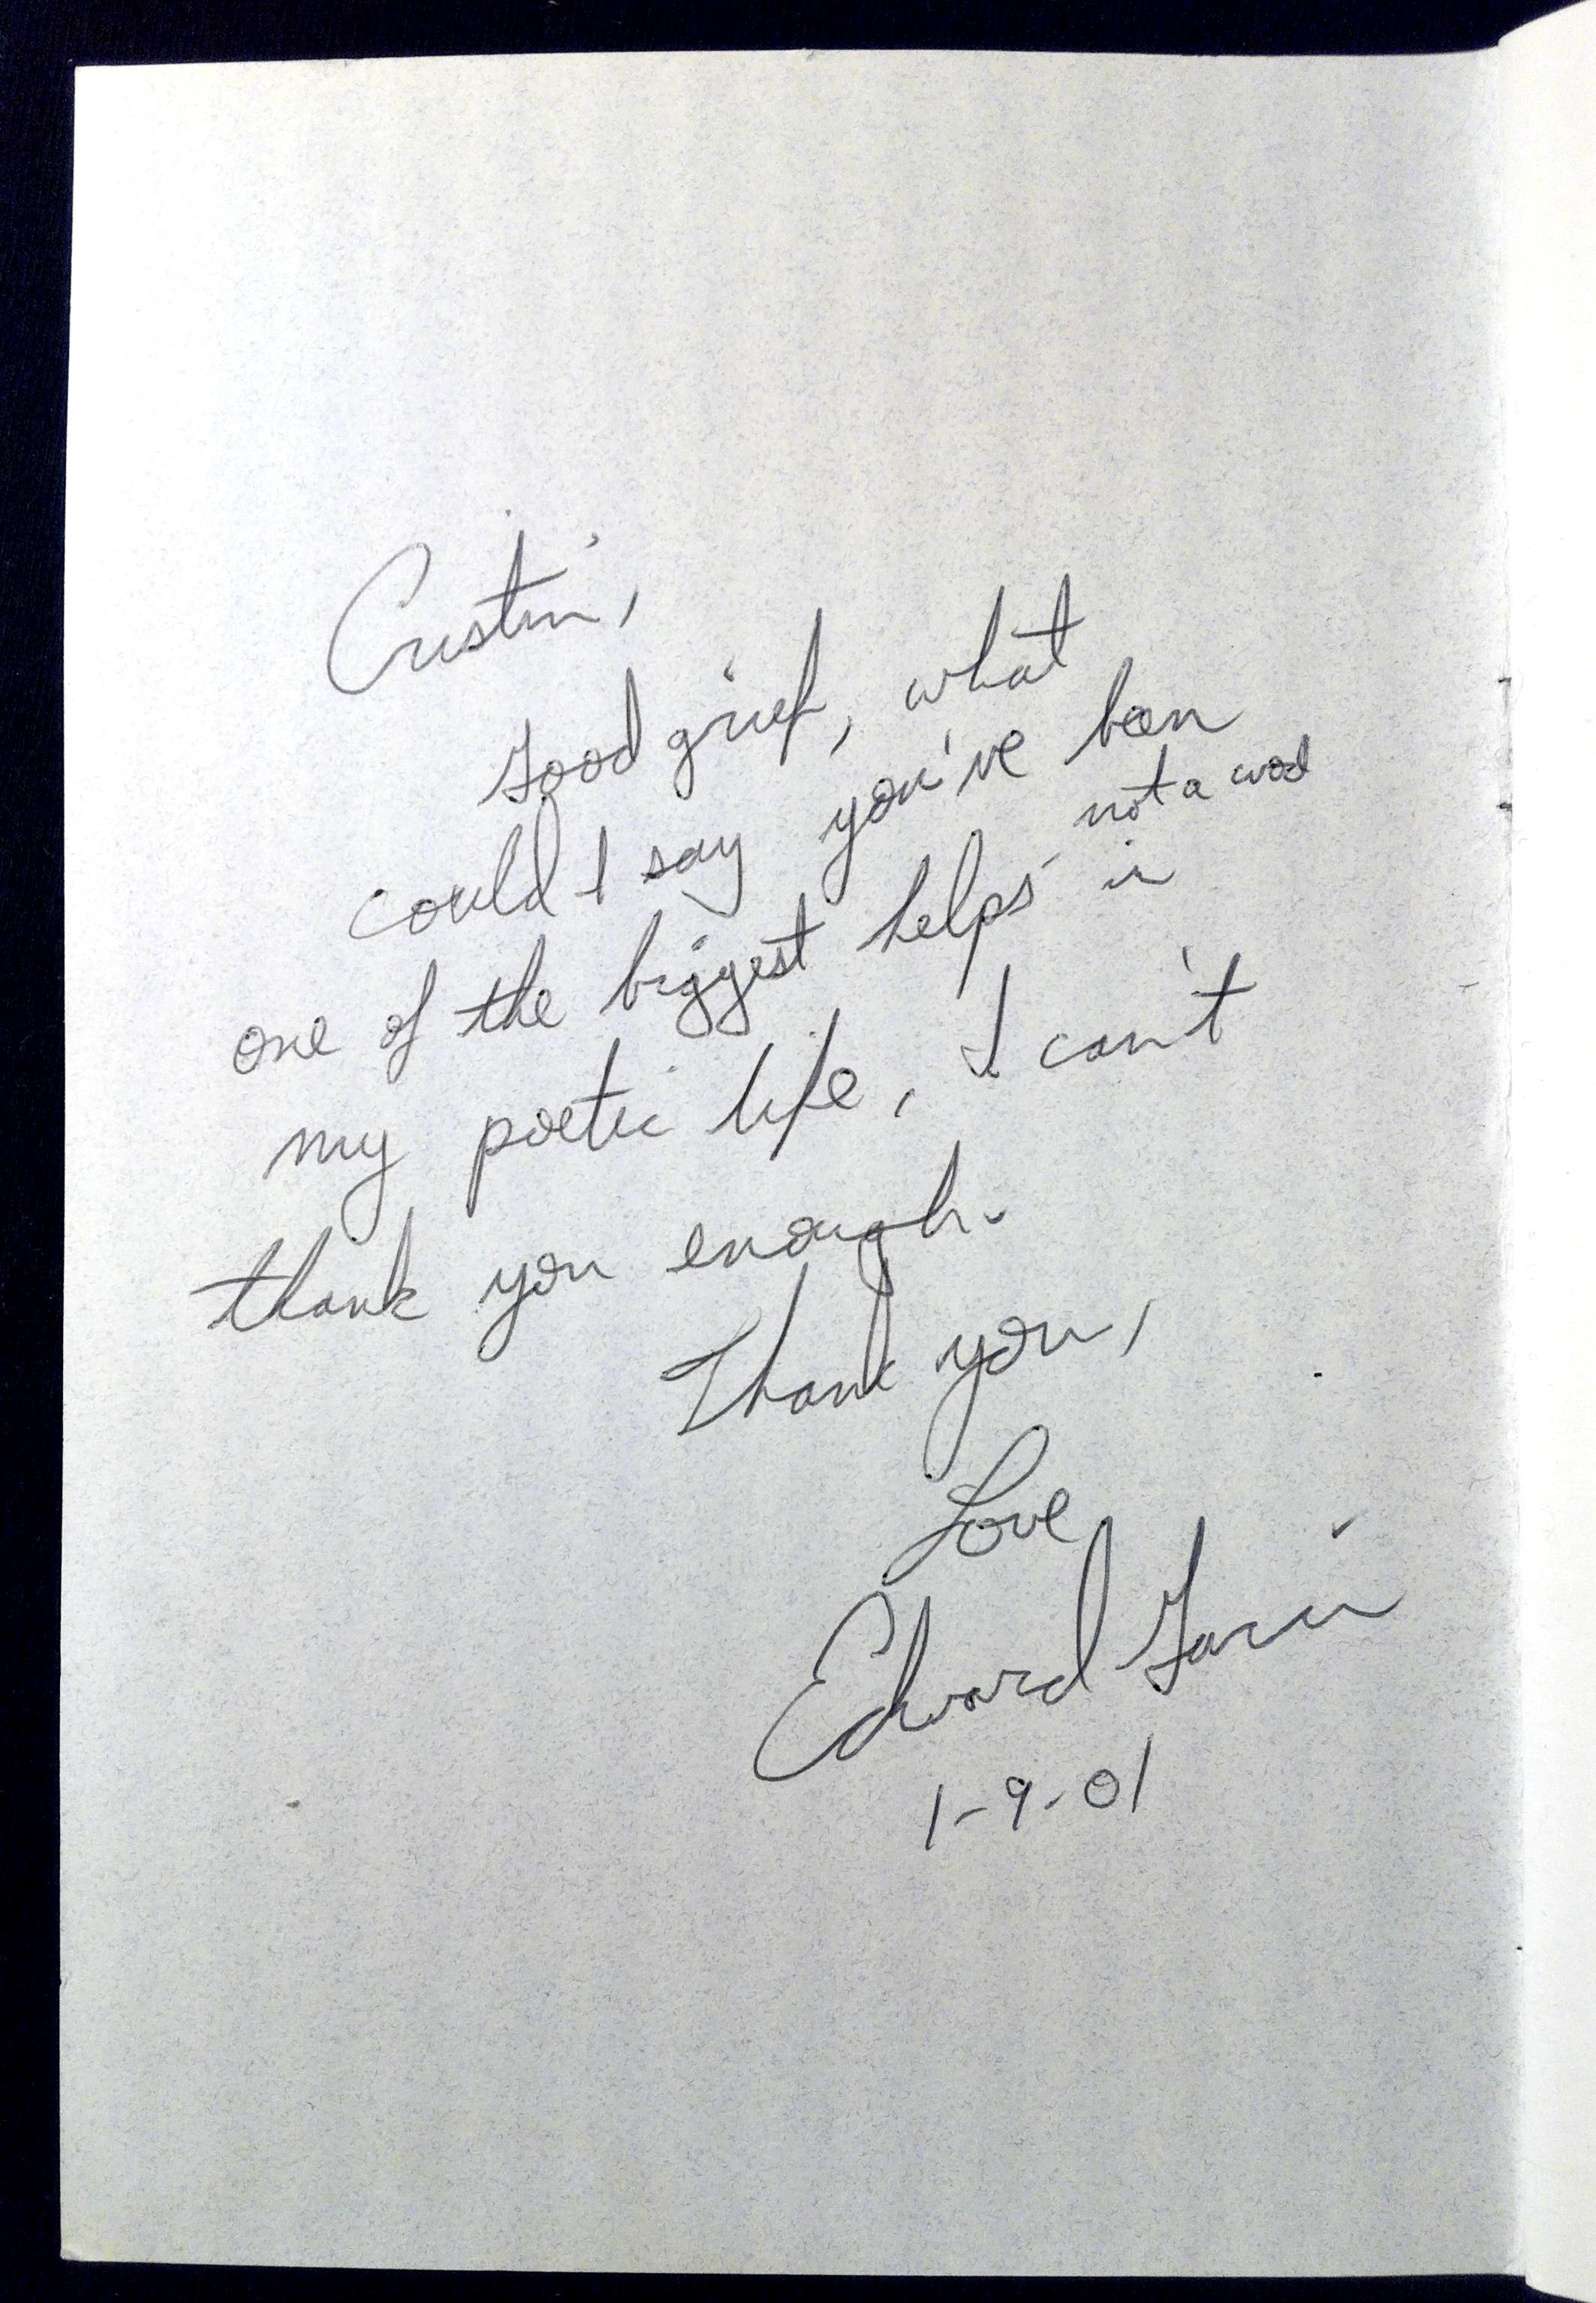 Cristin,
Good grief, what
could I say you've been
not a word
one of the biggest helps in
my poetic life, I can't
thank you enough.
Thank you,
Love
Edward
1-9-01